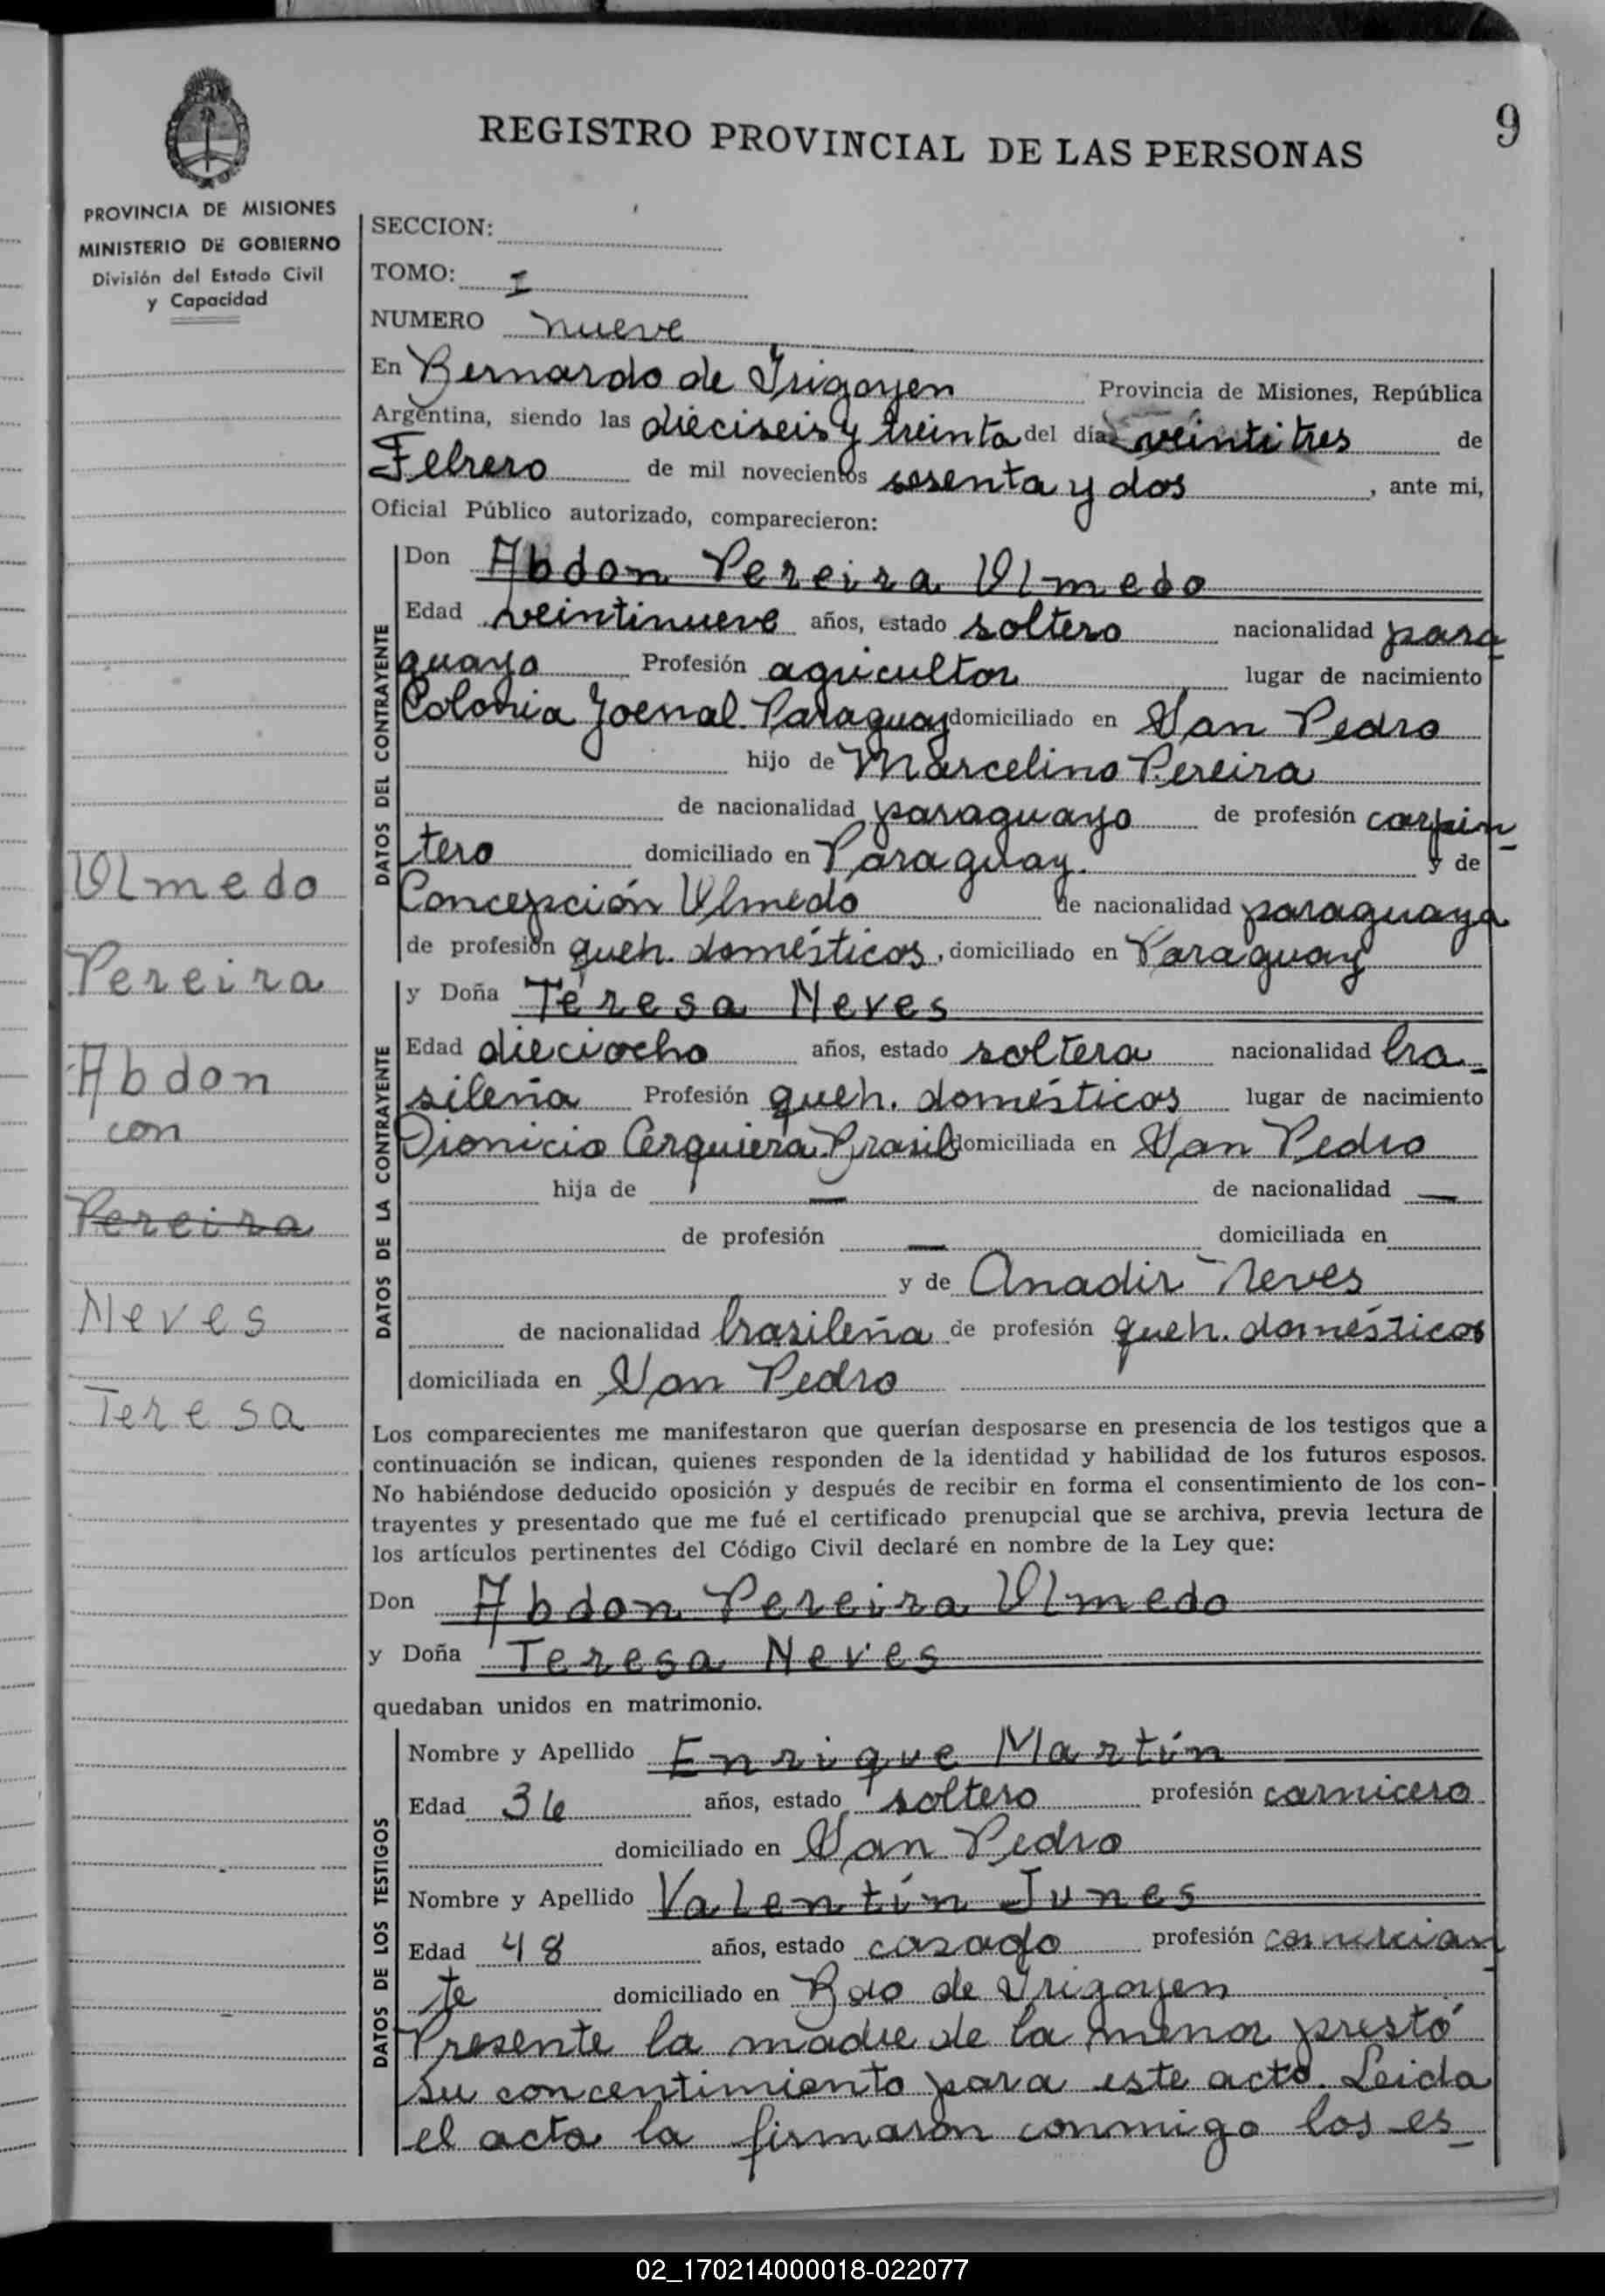 REGISTRO PROVINCIAL DE LAS PERSONAS
9
PROVINCIA DE MISIONES
MINISTERIO DE GOBIERNO
División del Estado Civil
y Capacidad
SECCION:
TOMO: I
NUMERO nueve
En Bernardo de Irigoyen Provincia de Misiones, República
Argentina, siendo las dieciseis y treinta del día veintitres de
Febrero de mil novecientos sesenta y dos, ante mi,
Oficial Público autorizado, comparecieron:
DATOS DEL CONTRAYENTE
Don Abdon Pereira Olmedo
Edad veintinueve años, estado soltero nacionalidad para
guayo Profesión agricultor lugar de nacimiento
Colonia Paraguay domiciliado en San Pedro
hijo de Marcelino Pereira
de nacionalidad paraguayo de profesión carpin
tero domiciliado en Paraguay. y de
Concepción Olmedo de nacionalidad paraguaya
de profesión queh. domésticos, domiciliado en Paraguay
DATOS DE LA CONTRAYENTE
y Doña Teresa Neves
Edad dieciocho años, estado soltera nacionalidad bra
sileña Profesión queh. domésticos lugar de nacimiento
Dionicio Cerquiera Brasil domiciliada en San Pedro
hija de — de nacionalidad —
de profesión — domiciliada en
y de Anadir Neves
de nacionalidad brasileña de profesión queh. domésticos
domiciliada en San Pedro
Los comparecientes me manifestaron que querían desposarse en presencia de los testigos que a
continuación se indican, quienes responden de la identidad y habilidad de los futuros esposos.
No habiéndose deducido oposición y después de recibir en forma el consentimiento de los con-
trayentes y presentado que me fué el certificado prenupcial que se archiva, previa lectura de
los artículos pertinentes del Código Civil declaré en nombre de la Ley que:
Don Abdon Pereira Olmedo
y Doña Teresa Neves
quedaban unidos en matrimonio.
DATOS DE LOS TESTIGOS
Nombre y Apellido Enrique Martín
Edad 36 años, estado soltero profesión carnicero
domiciliado en San Pedro
Nombre y Apellido Valentín Junes
Edad 48 años, estado casado profesión comercian
te domiciliado en Bdo de Irigoyen
Presente la madre de la menor prestó
su concentimiento para este acto. Leida
el acta la firmaron conmigo los es
Olmedo
Pereira
Abdon
con
Pereira
Neves
Teresa
02_170214000018-022077